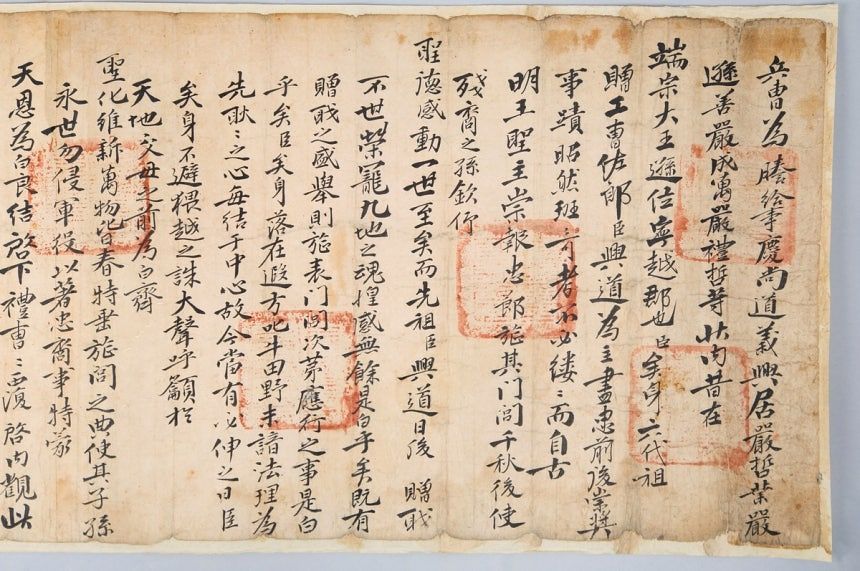 兵曺爲謄給事慶尙道義興居嚴哲業嚴
遜善嚴成萬嚴禮哲等狀內昔在
端宗大王遜位寧越郡也臣矣身六代祖
贈工曺佐郞臣興道爲主盡忠前後崇奬
事蹟昭然班可考不必縷〻而自古
明王聖主崇報忠節旌其門閭千秋後使
殘裔之孫欽行
聖德感動一世至矣而先祖臣興道日後 贈職
不世榮寵九地之魂惶感無餘是白乎矣旣有
贈職之盛擧則旌表門閭次第應行之事是白
乎矣臣矣身落在遐方北斗田野未諳法理爲
先耿〻之心每結于中心故今當有必伸之日臣
矣身不避猥越之誅大聲呼籲於
天地父母之前爲白齊
聖化維新萬物皆春特垂旌閭之典使其子孫
永世勿侵軍役以著忠裔事特蒙
天恩爲白良結啓下禮曺〻覆啓內觀此